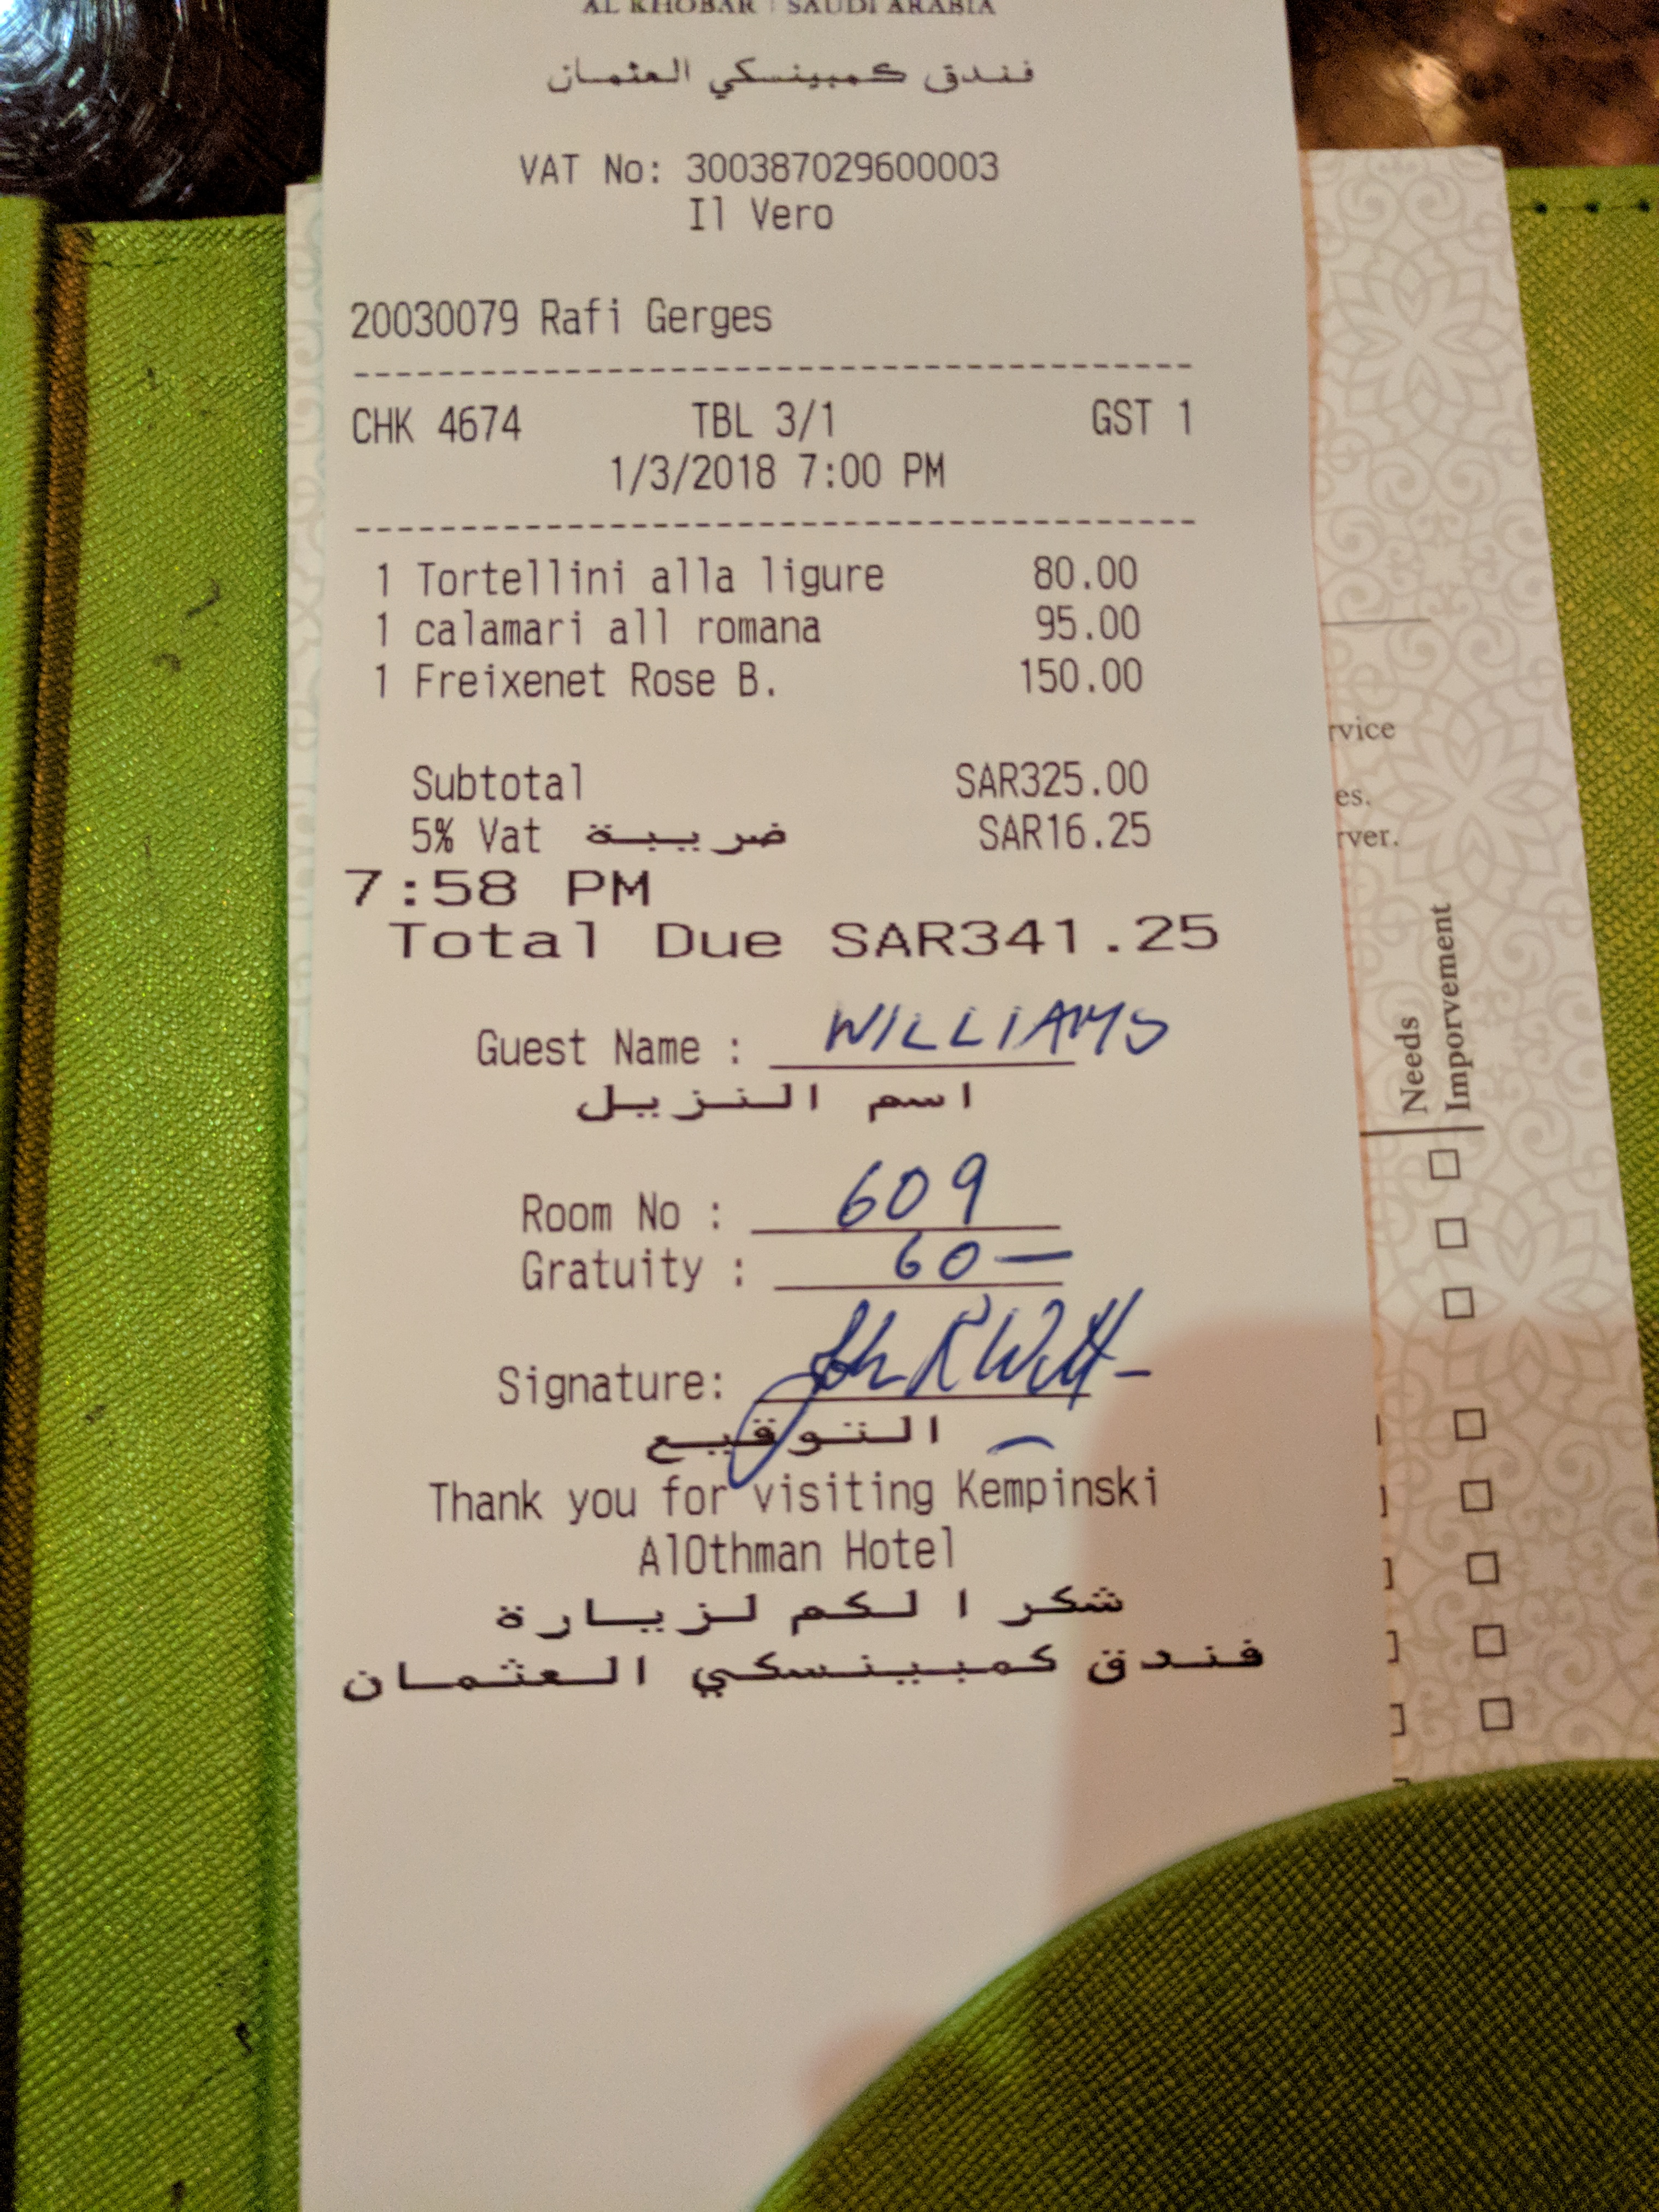 AL KHOBAR | SAUDI ARABIA
فندق كمبينسكي العثمان
VAT No: 300387029600003
Il Vero
20030079 Rafi Gerges
CHK 4674 TBL 3/1 GST 1
1/3/2018 7:00 PM
1 Tortellini alla ligure 80.00
1 calamari all romana 95.00
1 Freixenet Rose B. 150.00
Subtotal SAR325.00
5% Vat ضريبة SAR16.25
7:58 PM
Total Due SAR341.25
Guest Name : WILLIAMS
اسم النزيل
Room No : 609
Gratuity : 60 —
Signature:
التوقيع
Thank you for visiting Kempinski
AlOthman Hotel
شكر ا لكم لزيارة
فندق كمبينسكي العثمان
rvice
es.
rver.
Needs
Imporvement